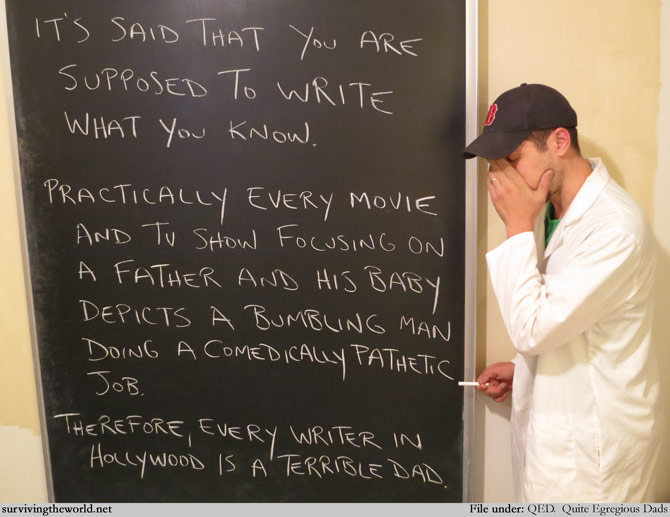 IT'S SAID THAT YOU ARE
SUPPOSED TO WRITE
WHAT YOU KNOW.
PRACTICALLY EVERY MOVIE
AND TV SHOW FOCUSING ON
A FATHER AND HIS BABY
DEPICTS A BUMBLING MAN
DOING A COMEDICALLY PATHETIC
JOB.
THEREFORE, EVERY WRITER IN
HOLLYWOOD IS A TERRIBLE DAD.
B
survivingtheworld.net
File under: QED. Quite Egregious Dads